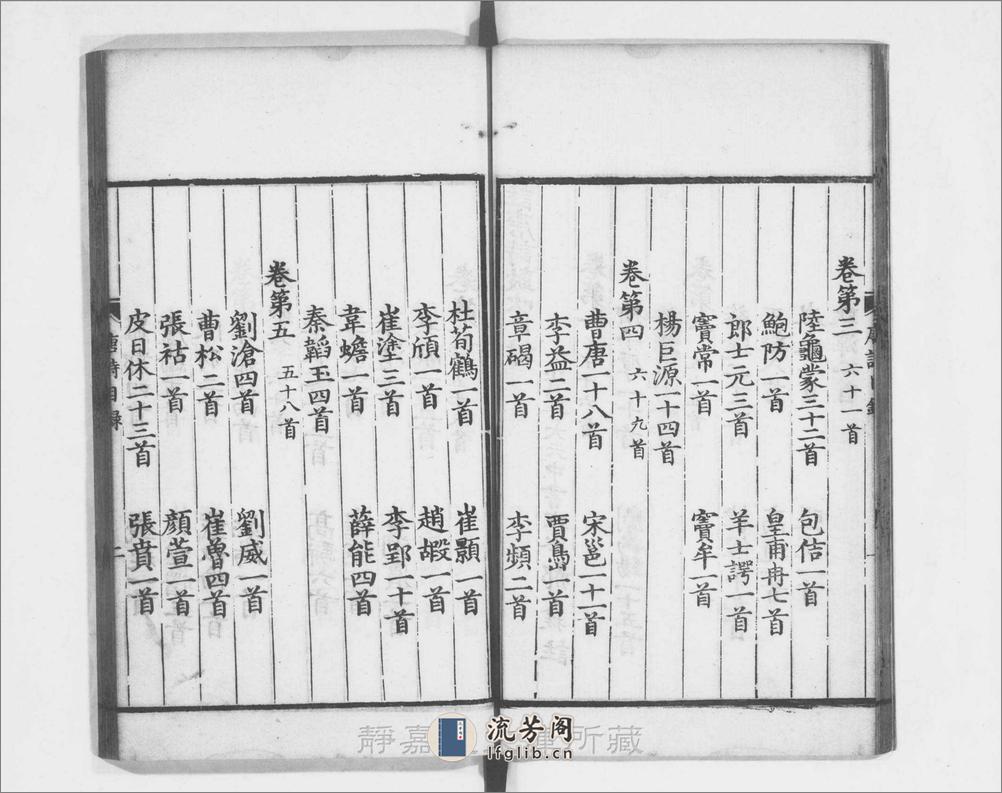 卷第三 六十一首
陸龜蒙三十二首 包佶一首
鮑防一首 皇甫冉七首
郎士元三首 羊士諤一首
竇常一首 竇牟一首
楊巨源一十四首
卷第四 六十九首
曹唐一十八首 宋邕一十一首
李益二首 賈島一首
章碣一首 李頻二首
杜荀鶴一首 崔顥一首
李頎一首 趙嘏一首
崔塗三首 李郢一十首
韋蟾一首 薛能四首
秦韜玉四首
卷第五 五十八首
劉滄四首 劉威一首
曹松二首 崔魯四首
張祜一首 顏萱一首
皮日休二十三首 張賁一首
唐詩目錄
二
靜嘉 所藏
流芳阁
lfglib.cn